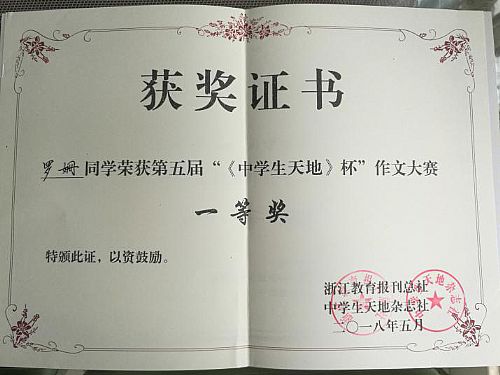 获奖证书
罗姗同学荣获第五届“《中学生天地》杯”作文大赛
一等奖
特颁此证，以资鼓励。
浙江教育报刊总社
中学生天地杂志社
二〇一八年五月